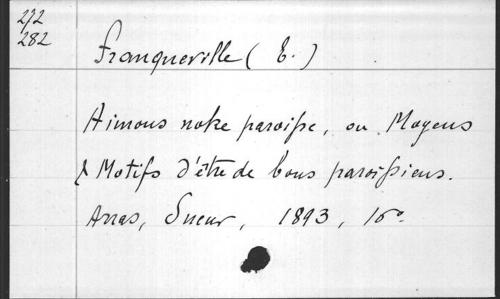 272
282
Franqueville (E.)
Aimons notre paroisse, ou Moyens
& Motifs d'être de bons paroissiens.
Arras, Sueur, 1893, 16º.